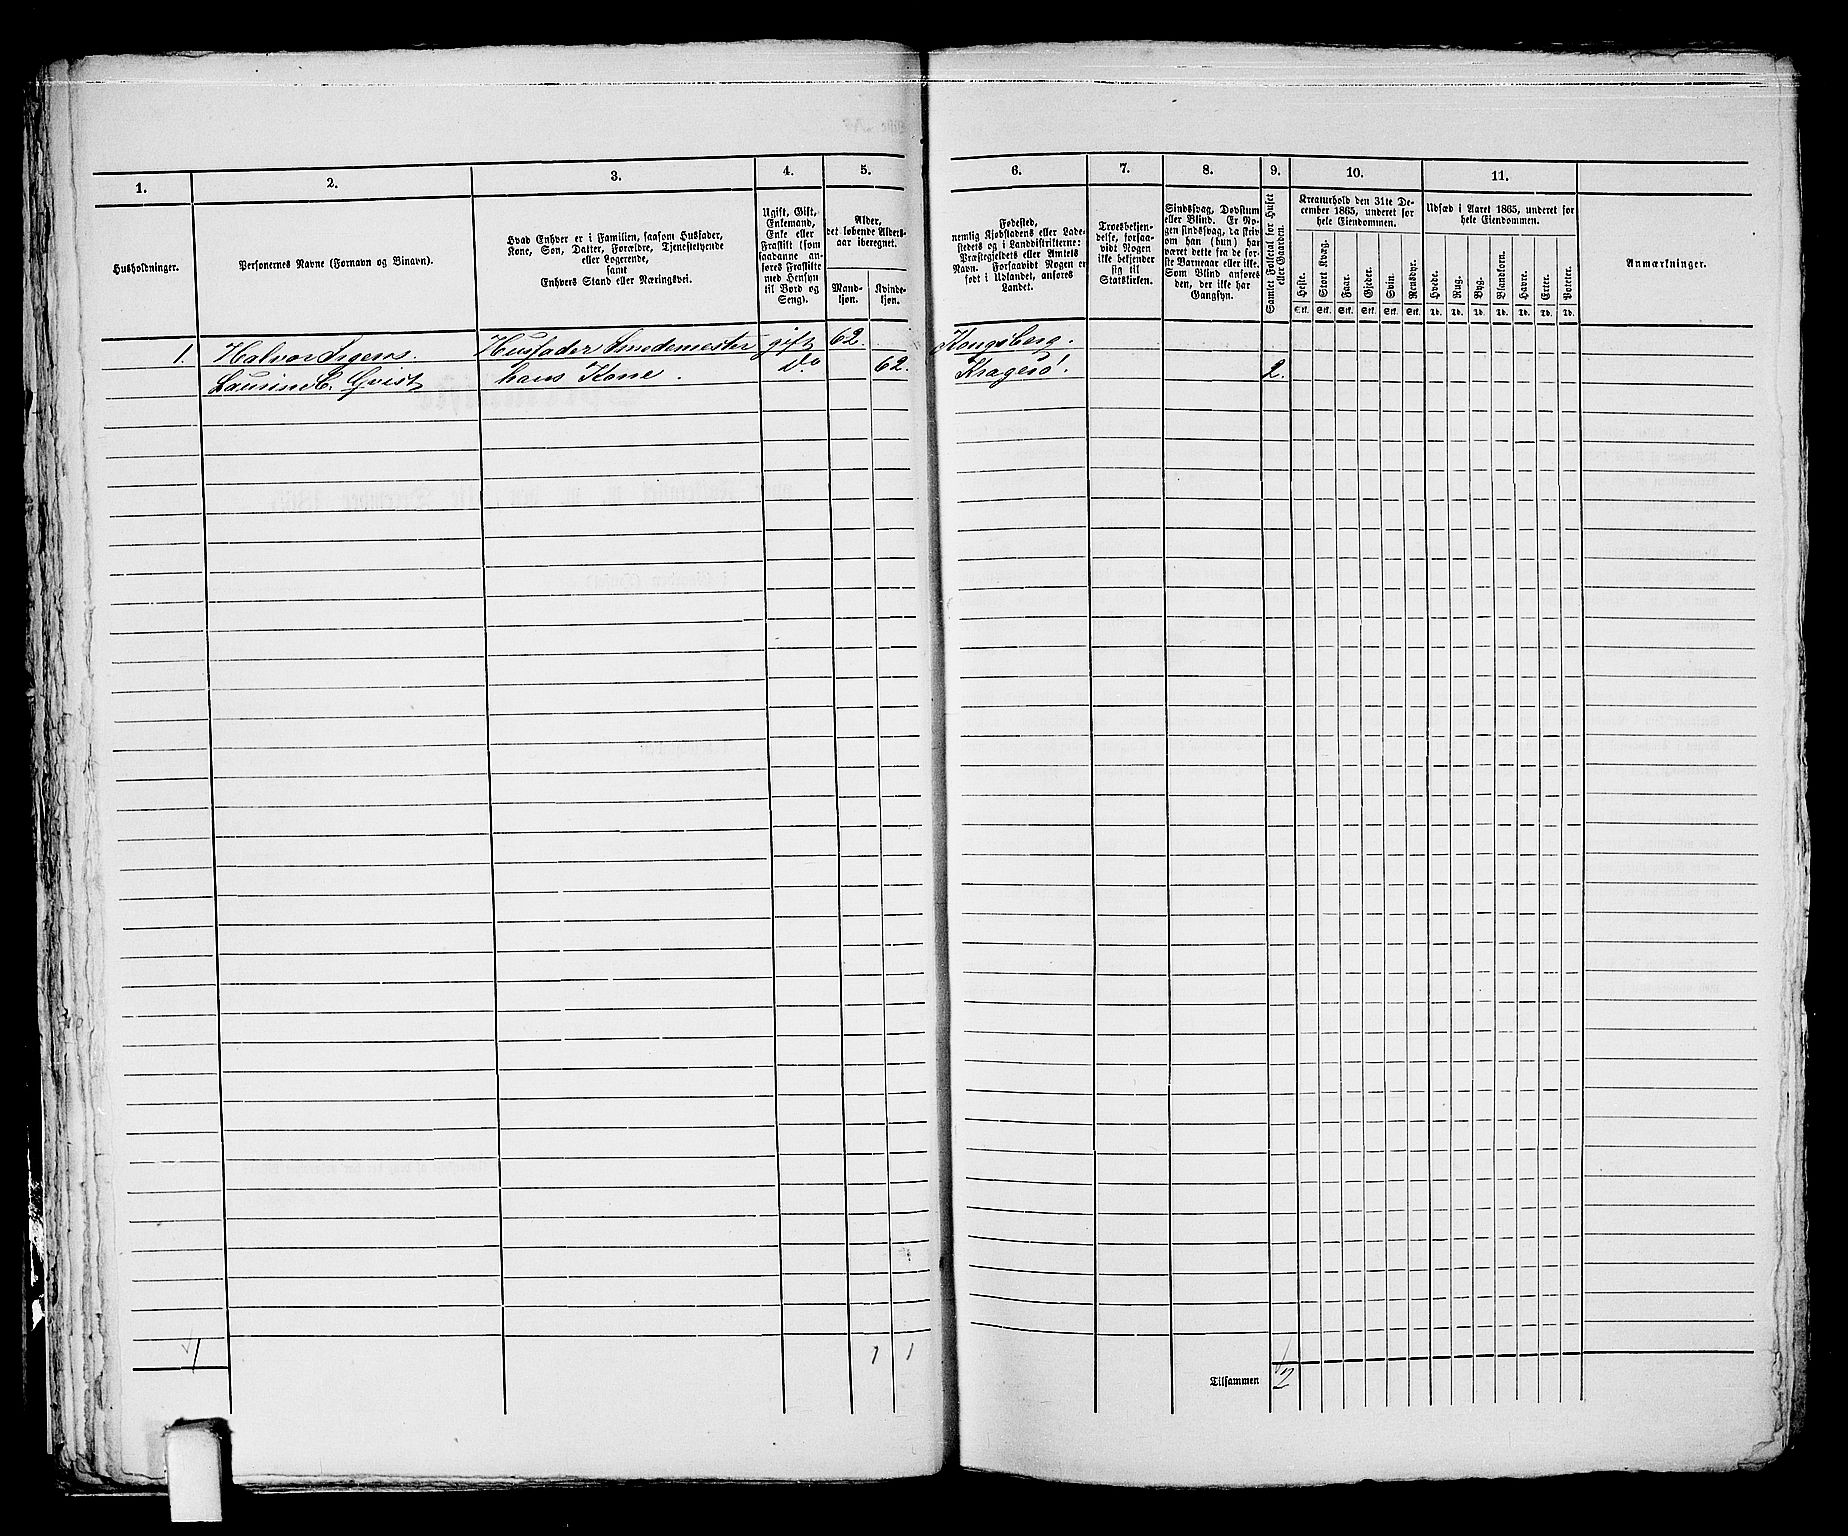 1.
2.
3.
4.
5.
6.
7.
8.
9.
10.
11.
Husholdninger.
Personernes Navne (Fornavn og Binavn).
Hvad Enhver er i Familien, saasom Husfader,
Kone, Søn, Datter, Forældre, Tjenestetyende
eller Logerende,
samt
Enhvers Stand eller Næringsvei.
Ugift, Gift,
Enkemand,
Enke eller
Fraskilt (som
saadanne an-
føres Fraskilte
med Hensyn
til Bord og
Seng).
Alder,
det løbende Alders-
aar iberegnet.
Mand-
kjøn.
Kvinde-
kjøn.
Fødested,
nemlig Kjøbstadens eller Lade-
stedets og i Landdistrikterne:
Præstegjeldets eller Amtets
Navn. Forsaavidt Nogen er
født i Udlandet, anføres
Landet.
Troesbekjen-
delse, forsaa-
vidt Nogen
ikke bekjender
sig til
Statskirken.
Sindssvag, Døvstum
eller Blind. Er No-
gen sindssvag, da skriv
om han (hun) har
været dette fra de før-
ste Barneaar eller ikke.
Som Blind anføres
den, der ikke har
Gangsyn.
Samlet Folketal for Huset
eller Gaarden.
Kreaturhold den 31te De-
cember 1865, underet for
hele Eiendommen.
Heste.
Stort Kvæg.
Faar.
Gjeder.
Svin.
Rensdyr.
Stk. Stk. Stk. Stk. Stk. Stk.
Udsæd i Aaret 1865, underet for
hele Eiendommen.
Hvede.
Rug.
Byg.
Blankorn.
Havre.
Erter.
Poteter.
Td. Td. Td. Td. Td. Td. Td.
Anmærkninger.
1. Halvor Husfader Smedemester gift 62. Kongsberg.
Qvist hans Kone. Do 62. Kragerø. 2.
1 1 1
Tilsammen 2